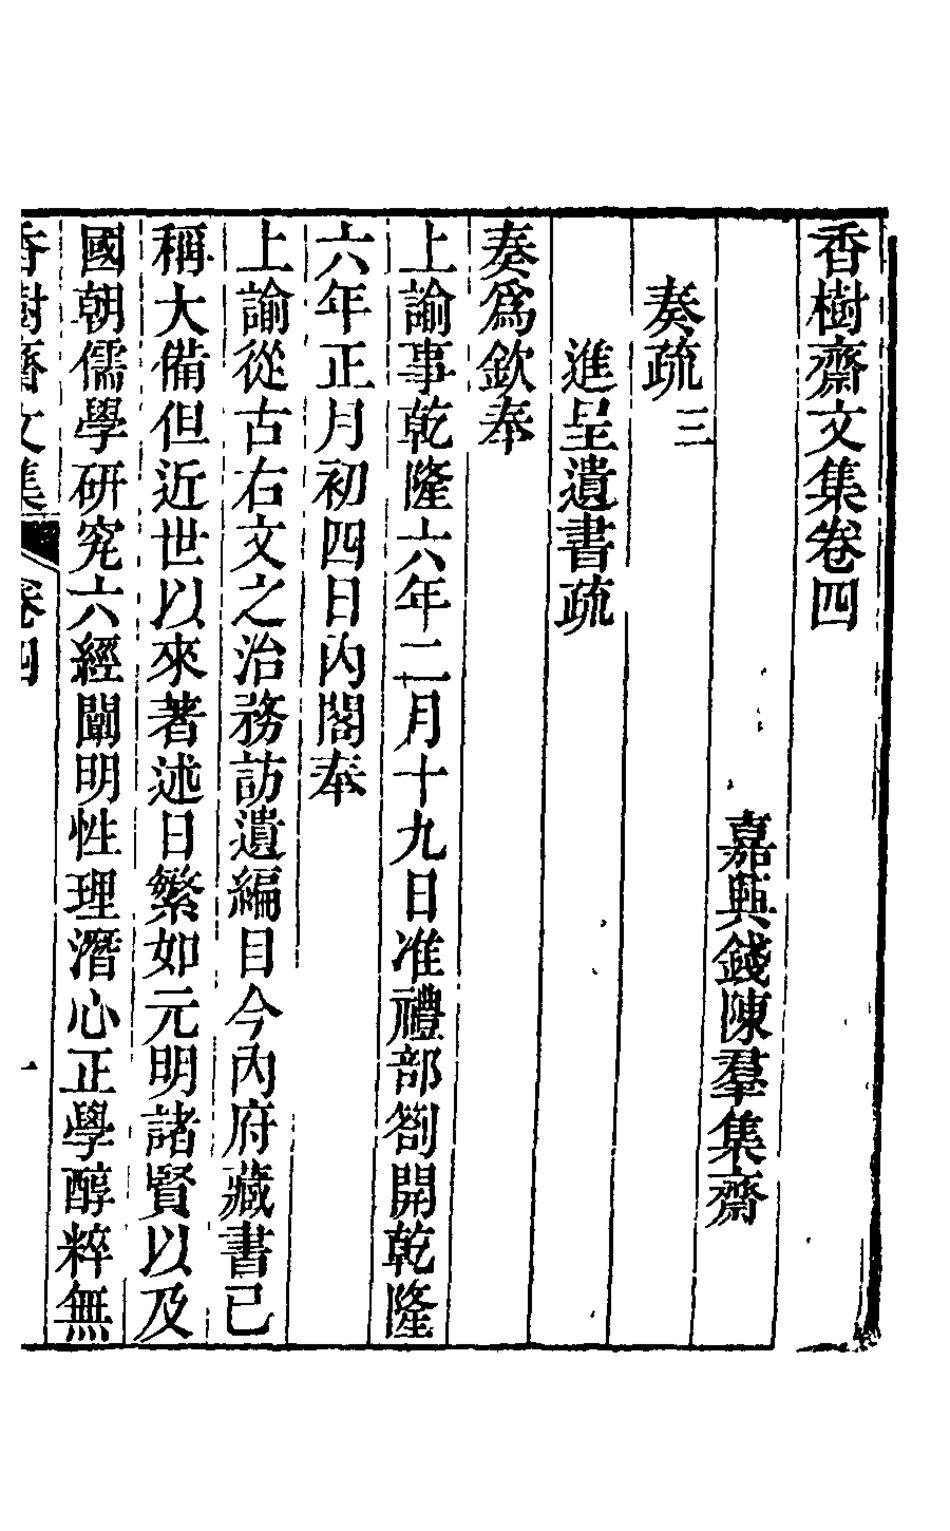 香樹齋文集卷四
嘉興錢陳羣集齋
奏疏三
進呈遺書疏
奏爲欽奉
上諭事乾隆六年二月十九日准禮部劄開乾隆
六年正月初四日内閣奉
上諭從古右文之治務訪遺編目今内府藏書已
稱大備但近世以來著述日繁如元明諸賢以及
國朝儒學研究六經闡明性理潛心正學醇粹無
香樹齋文集 卷四 一